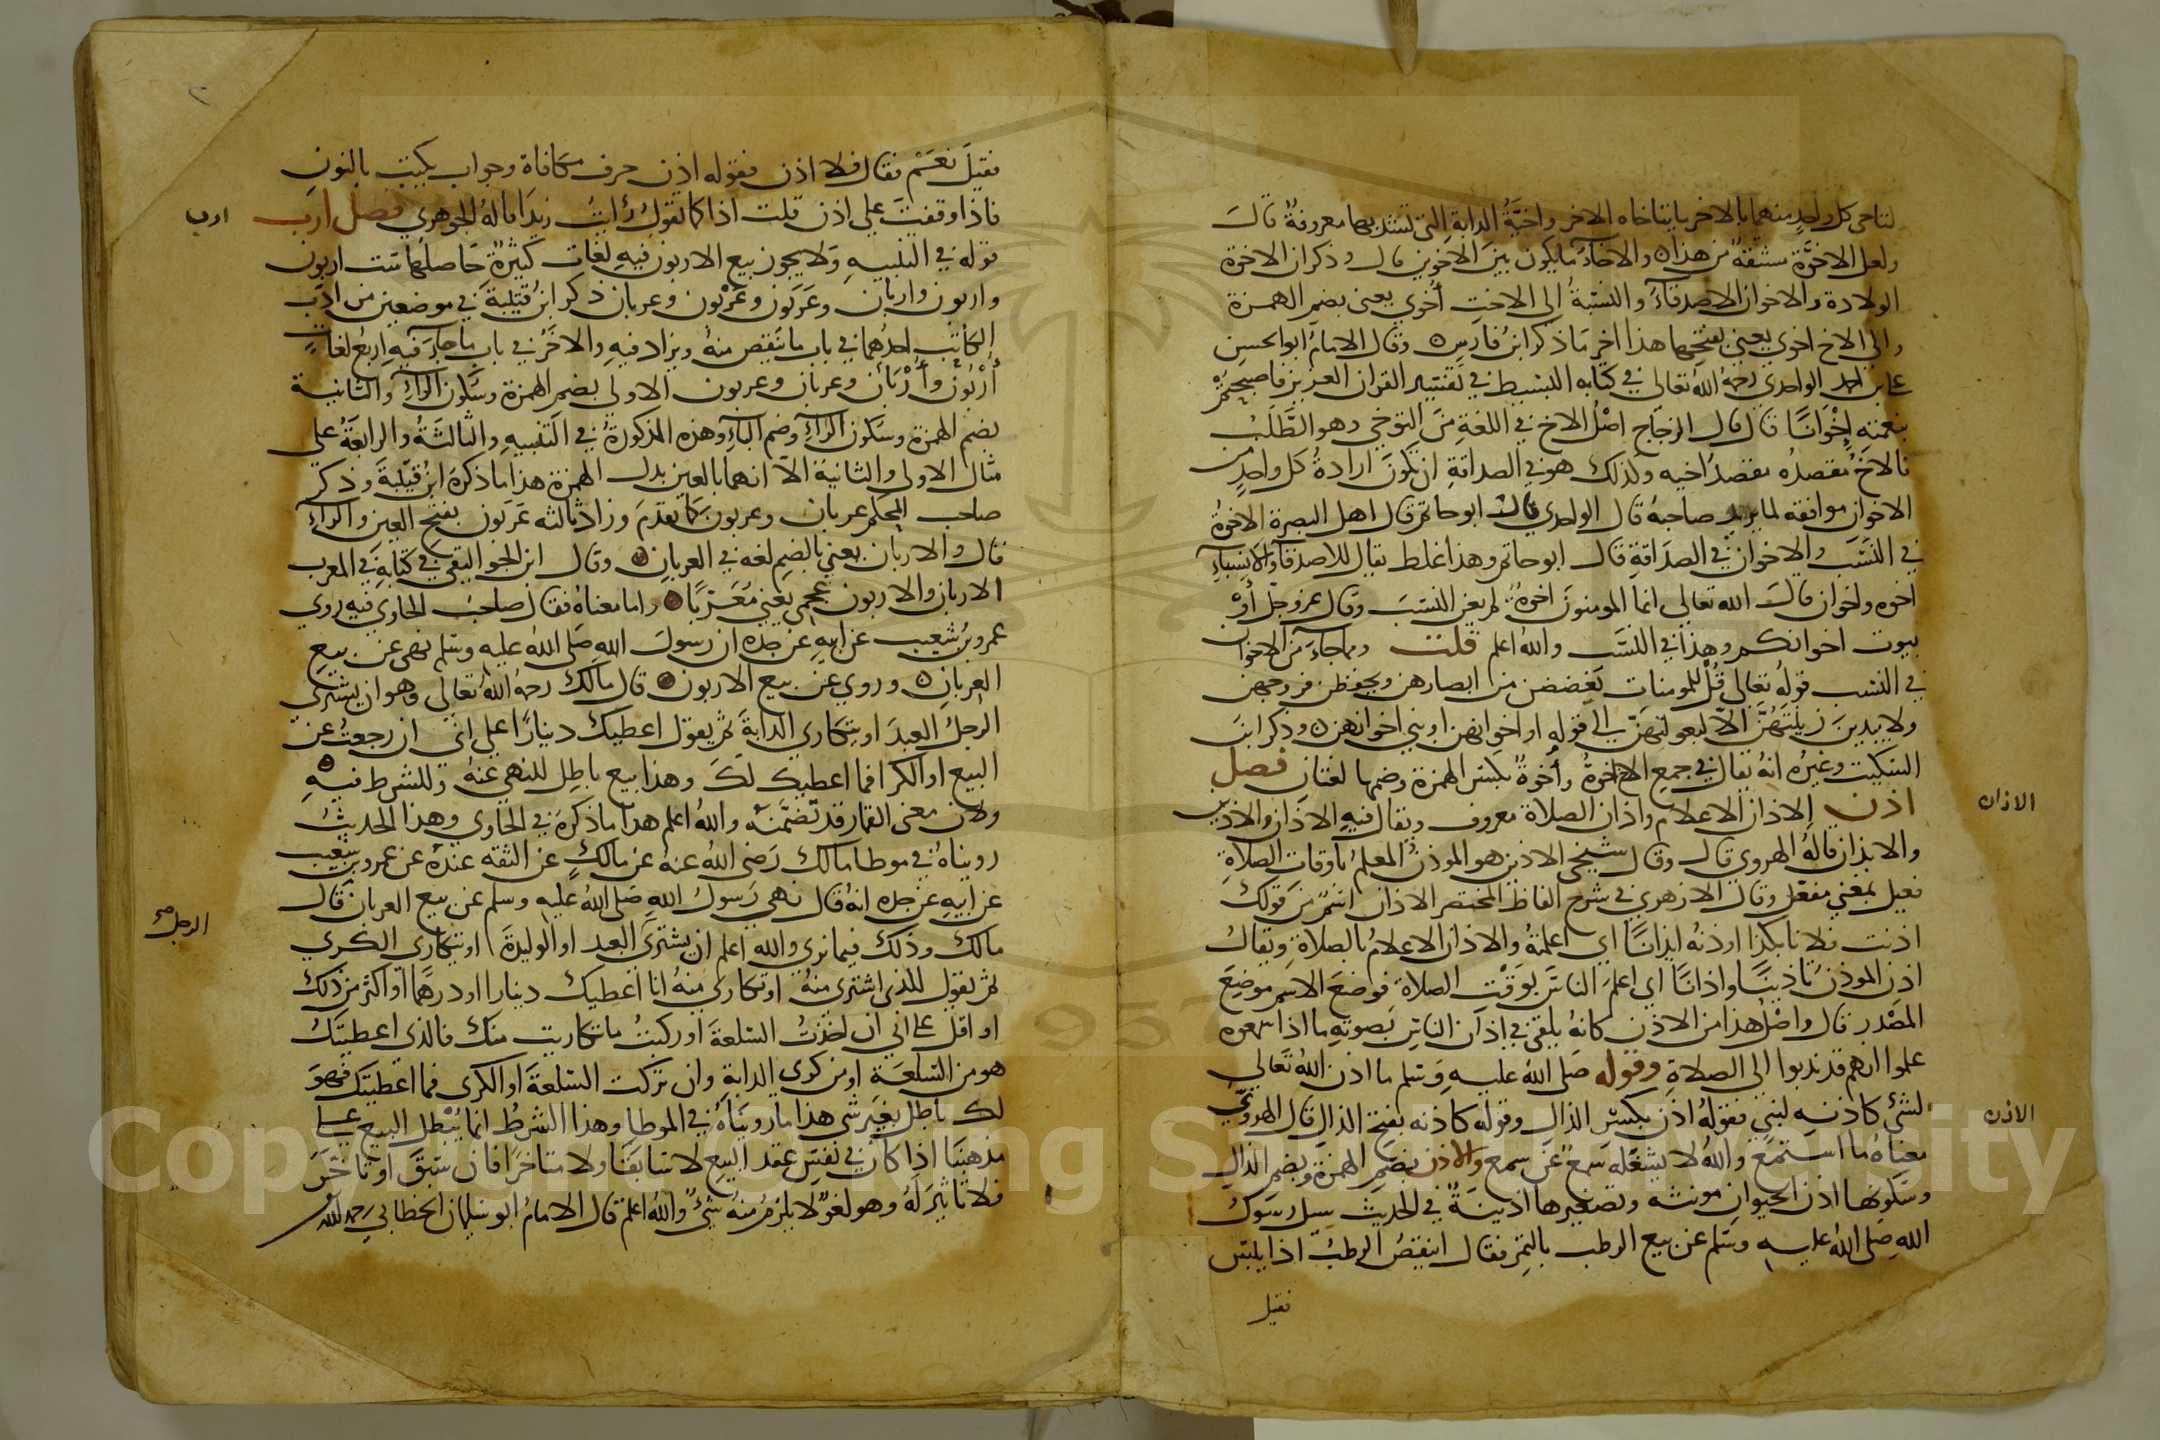 لتاخي كل واحد منهما بالاخر بايتاخاه الاخر واخيَّةُ الدابةِ التي تشد بها معروفةٌ قالَ
ولعل الاخوَّة مشتقةٌ من هذا ه والاخآءُ مايكون بين الاخوين قال وذكر ان الاخوة
الولادة والاخوان الاصدقآءُ والنسبةُ الى الاختِ أُخوي يعنى بضم الهمزة
والى الاخ اخوي يعنى بفتحها هذا اخر مَا ذكر ابن فارس ه وقال الامامُ ابوالحسن
على بن احمد الواحدي رحمهُ اللّٰه تعالى في كتابه البسيط في تفسير القران العزيز فاصبحتمْ
بنعمته إخْوَانًا قال قال الزجّاج اصْلُ الاخ في اللغةِ مِنَ التوخي وهو الطَّلَبُ
فالاخُ مقصدُه مقصدُ اخيه وكذلك هو في الصداقةِ ان تكونَ ارادةُ كل واحدٍ من
الاخوان موافقه لما يريد صاحبهُ قال الواحدي قالَ ابوحاتم قال اهل البصرة الاخوةُ
في النسَب والاخوان في الصدَاقةِ قال ابوحاتم وهذا غلط يقال للاصدقآءِ والانسِبآءِ
اخوه واخوان قالَ اللّٰه تعالى انما المومنونَ اخوةٌ لم يعن النسَبَ وقال عز وجل أوْ
بيوت اخوانكم وهذا في النسَب واللّٰهُ اعلم قلتُ ومماجآءَ من الاخوان
في النسب قولُه تعالى قُلْ للمومنات يَغضضن من ابصارهن ويحفظن فروجهن
ولا يبدين زينتَهُنَّ الاّ لبعولتهنّ الى قوله او اخوانهن اوبني اخوانهن ه وذكر ابنُ
السكيت وغيرُه انهُ يقال في جمع الاخ اخوةٌ وأُخوةٌ بكسر الهمزة وضمها لغتان فصل
اذن الاذان الاعلام واذان الصلاة معروف ويقال فيه الاذان والاذين
والايذان قالهُ الهروي قال وقال شيخي الاذين هو الموذن المعلمُ باوقات الصلاةِ
فعيل بمعنى مفعل وقال الازهري في شرح الفاظ المختصر الاذان اسمٌ من قولك
اذنت فلانا بكذا اوذنه ايذانًا اي اعلمتهُ والاذان الاعلامُ بالصلاةِ ويقالُ
اذن الموذنُ تاذينًا واذانًا اي اعلم الناسَ بوَقْت الصلاة فوضعَ الاسم موضعَ
المصْدر قال واصْلُ هذا من الاذن كانهُ يلقى في اذان الناس بصوتهِ ما اذا سمعوه
علموا انهم قد ندبوا الى الصلاةِ وقوله صَلى اللّٰهُ عليه وسَلم ما اذن اللّٰهُ تَعالى
لشئٍ كاذنه لنبي فقولُهُ اذن بكسْر الذال وقوله كاذنه بفتح الذال قال الهرويُّ
معناهُ ما استمعَ واللّٰهُ لا يشغَلهُ سَمعٌ عَن سمع والاذن بضم الهمزة وبضم الذال
وسكونها اذن الحيوان مونثه وتصغيرها اذينةٌ في الحديث سيل رسول
اللّٰه صَلى اللّٰهُ عليه وسَلم عن بيع الرطب بالتمر فقال اينقصُ الرطبُ اذا يبسَ
فقيل
الاذان
الاذن
فقيلَ نعَمْ فقال فلا اذن فقوله اذن حرف مكافاة وجواب يكتب بالنون
فاذا وقفتَ على اذن قلت اذا كما تقولُ رأيتُ زيدَا قالهُ الجوهري فصل ارب
قوله في التنبيهِ وَلا يجوز بيع الاربون فيهِ لغات كثيرةٌ حَاصلُها ست اربون
واربون واربان وعَرَبون وعَرْبون وعربان ذكر ابنُ قتيبةَ في موضعين من ادَب
الكاتب احدُهما في باب ما ينقص منهُ ويزاد فيه والاخَرُ في باب ما جآءَ فيهِ اربع لغاتٍ
أُرْبُونٌ وأُرْبَان وعربان وعربون الاولى بضم الهمزة وسكون الرآءِ والثانية
بضم الهمزة وسكون الرآءِ وضم البآءِ وهذه المذكورةُ في التنبيهِ والثالثَةُ والرابعَةُ على
مثال الاولى والثانية الاّ انهما بالعين بدل الهمزة هذا ما ذكرهَ ابنُ قتيبَةَ وذكر
صاحب المحكم عربان وعربون كما تقدمَ وزاد ثالثه عَرَبون بفتح العين والرآءِ
قال والاربان يعني بالضم لغه في العربان ه وقال ابن الجواليقي في كتابهِ في المعرب
الاربان والاربون عجمي يعني مُعَرّبًا ه واما معناهُ فقال صاحبُ الحاوي فيه روي
عمروبنُ شعيب عن ابيهِ عن جده ان رسولَ اللهِ صَلى اللّٰهُ عليه وسَلم نهى عن بيع
العربان ه وروي عن بيع الاربون ه قال مالك رحمهُ اللّٰهُ تعالى وهو ان يشتري
الرجلُ العبدَ اويتكارى الدابةَ ثم يقول اعطيك دينارًا على اني ان رجعتُ عن
البيع او الكرا فما اعطيتك لك وهذا بيع باطِل للنهي عنهُ وللشرط فيه ه
ولان معنى القمار قد تضمَّنَه واللّٰهُ اعلم هذا ماذكرهَ في الحاوي وهذا الحديثُ
رويناهُ في موطا مالك رَضى اللّٰهُ عنهُ عن مالكٍ عن الثقه عندهُ عن عمروبن شعيب
عن ابيهِ عن جده انهُ قال نهى رَسولُ اللهِ صَلى اللّٰهُ عليهِ وسلم عن بيع العربان قال
مالك وذلك فيما نرى واللّٰه اعلم ان يشترىَ العبد او الوليدةَ او يتكارى الكري
ثم يقول للذى اشترى منهُ او تكارى منهُ انا اعطيك دينارا اودرهمًا او اكثر من ذلك
او اقل على اني ان اخذتُ السّلعةَ او ركبتُ ما تكاريت منك فالذى اعطيتكُ
هومن السّلعَة اومن كرى الدابةِ وان تركت السّلعةَ او الكرى فما اعطيتك فهوَ
لك باطل بغير شى هذا مارويناهُ في الموطا وهذا الشرطُ انما يُبْطل البيع على
مذهبنَا اذا كان في نفس عَقد البيع لا سَابقًا ولا متاخرًا فان سَبَقَ اوتاخَرَ
فلا تاثيرَ لهُ وهولغوٌ لا يلزمُ منهُ شئٌ واللّٰهُ اعلم قال الامامُ ابوسُليمان الخطابي رحمه اللّٰه
ارب
الرجل صح
٢
Copyright © King Saud University
1957